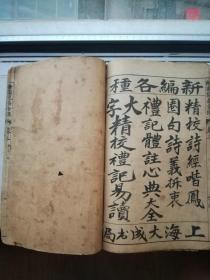 新編各種
精校詩經喈鳳
圈句詩義折衷
禮記體註心典大全
大字精校禮記易讀
上海大成書局